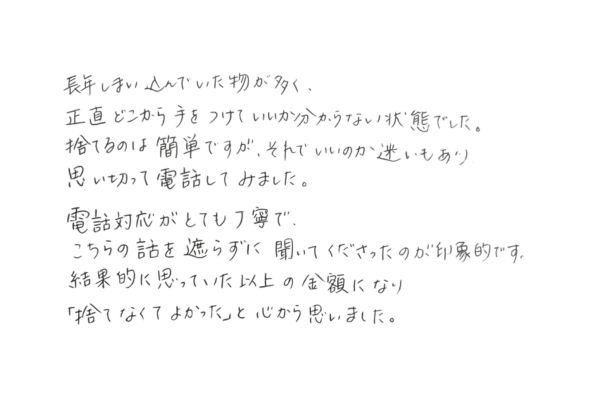 長年しまい込んでいた物が多く、
正直どこから手をつけていいか分からない状態でした。
捨てるのは簡単ですが、それでいいのか迷いもあり
思い切って電話してみました。
電話対応がとても丁寧で、
こちらの話を遮らずに聞いてくださったのが印象的です。
結果的に思っていた以上の金額になり
「捨てなくてよかった」と心から思いました。